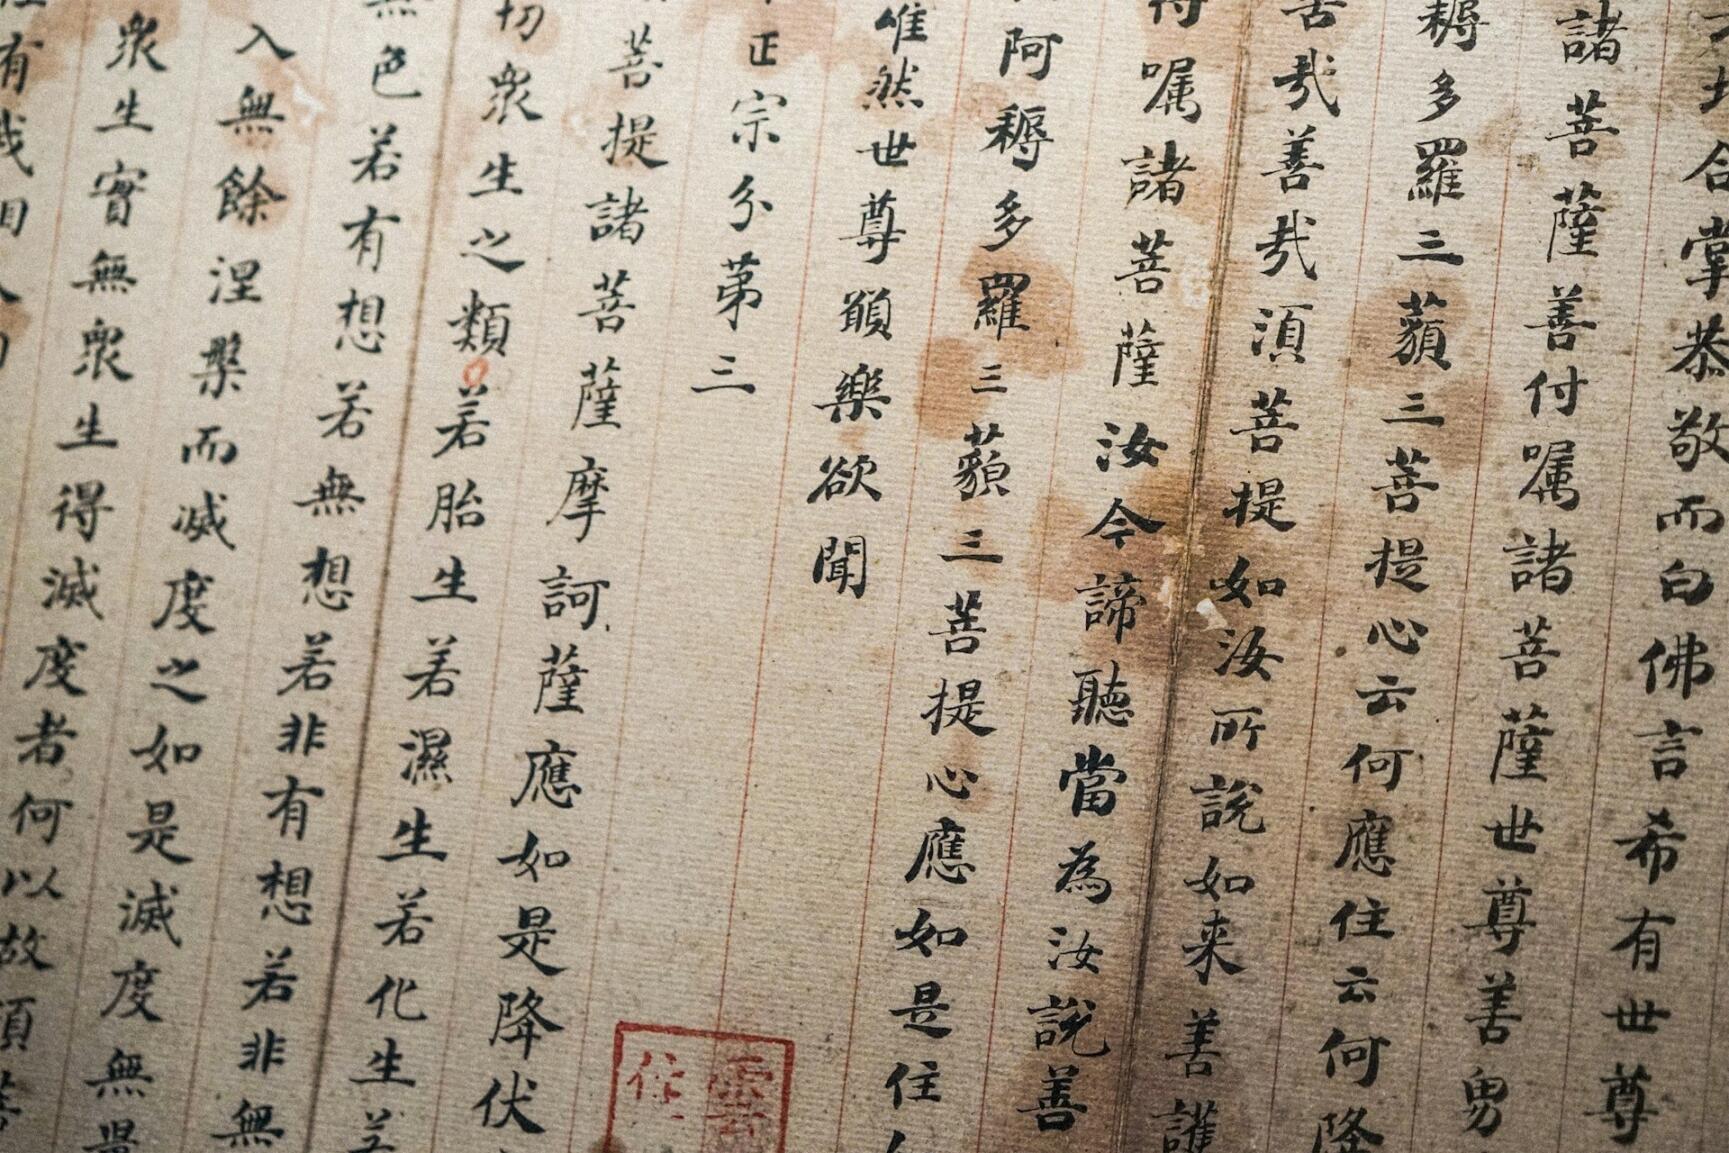 合掌恭敬而白佛言希有世尊
諸菩薩善付囑諸菩薩世尊善男
耨多羅三藐三菩提心云何應住云何降
哉善哉須菩提如汝所說如來善護
囑諸菩薩汝今諦聽當為汝說善
阿耨多羅三藐三菩提心應如是住
唯然世尊願樂欲聞
正宗分第三
菩提諸菩薩摩訶薩應如是降伏
切衆生之類若胎生若濕生若化生若
色若有想若無想若非有想若非無
入無餘涅槃而滅度之如是滅度無量
衆生實無衆生得滅度者何以故須菩
有我相人
雲
住